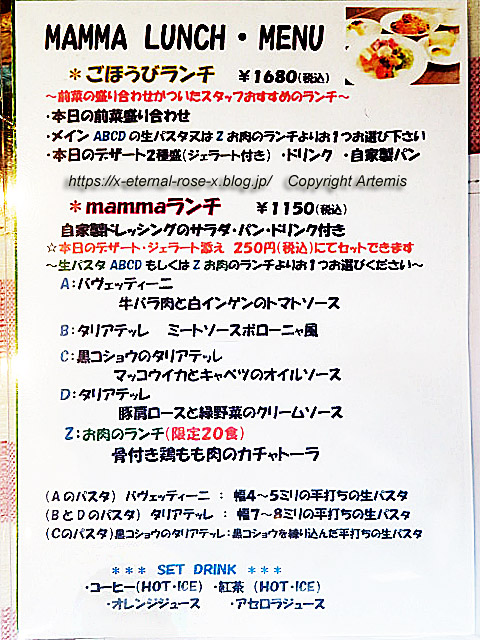 MAMMA LUNCH・MENU
＊ごほうびランチ ￥1680(税込)
～前菜の盛り合わせがついたスタッフおすすめのランチ～
・本日の前菜盛り合わせ
・メイン ABCD の生パスタ又は Z お肉のランチよりお1つお選び下さい
・本日のデザート2種盛(ジェラート付き) ・ドリンク ・自家製パン
https://x-eternal-rose-x.blog.jp/ Copyright Artemis
＊mammaランチ ￥1150(税込)
自家製ドレッシングのサラダ・パン・ドリンク付き
☆本日のデザート・ジェラート添え 250円(税込)にてセットできます
～生パスタ ABCD もしくは Z お肉のランチよりお1つお選びください～
A：バヴェッティーニ
牛バラ肉と白インゲンのトマトソース
B：タリアテッレ ミートソースボローニャ風
C：黒コショウのタリアテッレ
マッコウイカとキャベツのオイルソース
D：タリアテッレ
豚肩ロースと緑野菜のクリームソース
Z：お肉のランチ(限定20食)
骨付き鶏もも肉のカチャトーラ
(Aのパスタ) バヴェッティーニ ： 幅4～5ミリの平打ちの生パスタ
(BとDのパスタ) タリアテッレ ： 幅7～8ミリの平打ちの生パスタ
(Cのパスタ)黒コショウのタリアテッレ：黒コショウを練り込んだ平打ちの生パスタ
＊＊＊ SET DRINK ＊＊＊
・コーヒー(HOT・ICE) ・紅茶 (HOT・ICE)
・オレンジジュース ・アセロラジュース